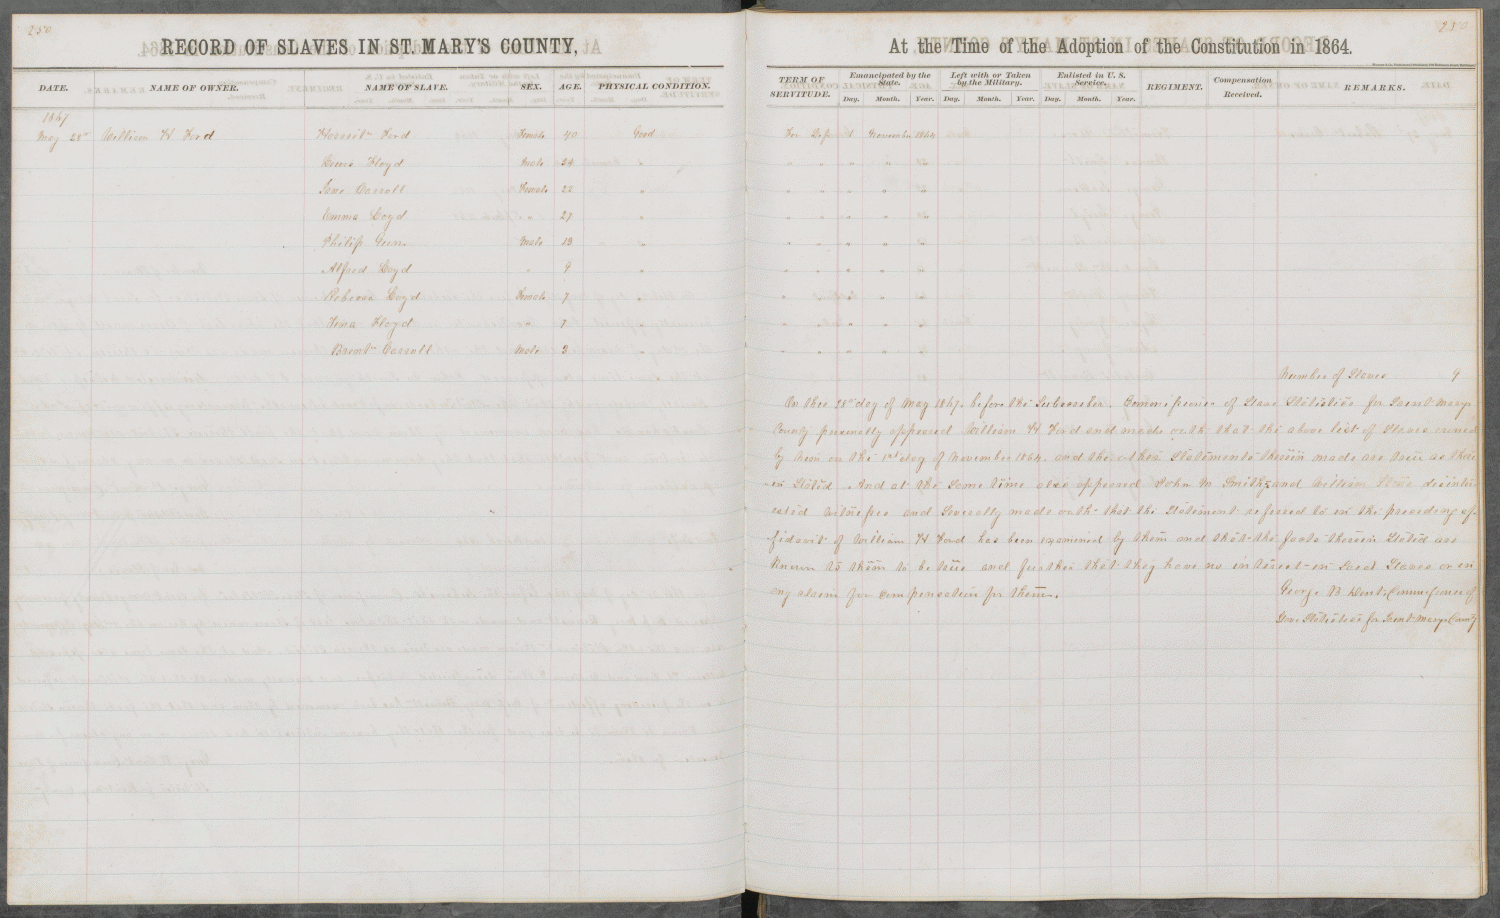 250
RECORD OF SLAVES IN ST. MARY'S COUNTY,
DATE. NAME OF OWNER. NAME OF SLAVE. SEX. AGE. PHYSICAL CONDITION.
1867
May 28th William H Ford Harriet Ford Female 40 Good
Lewis Floyd Male 24 "
Jane Carroll Female 22 "
Emma Loyd " 27 "
Philip Male 13 "
Alfred Loyd " 9 "
Rebecca Loyd Female 7 "
Floyd " 7 "
Carroll Male 3 "
250
At the Time of the Adoption of the Constitution in 1864.
TERM OF SERVITUDE. Emancipated by the State. Left with or Taken by the Military. Enlisted in U. S. Service. REGIMENT. Compensation Received. REMARKS.
Day. Month. Year. Day. Month. Year. Day. Month. Year.
For Life 1 November 1864
" " " " "
" " " " "
" " " " "
" " " " "
" " " " "
" " " "
" " " "
" " " " "
Number of Slaves 9
On this 28th day of May 1867, before the Subscriber, Commissioner of Slave Statistics for Saint Marys
County personally appeared William H Ford and made oath that the above list of Slaves owned
by him on the 1st day of November 1864, and the other Statements therein made are true as there
in Stated. And at the same time also appeared John M. Smith and William disinter
ested witnesses and Severally made oath that the Statement referred to in the preceding af
fidavit of William H Ford has been examined by them and that the facts therein Stated are
Known to them to be true and further that they have no interest in Said Slaves or in
any claim for compensation for them.
George B Dent Commissioner of
Slave Statistics for Saint Marys County